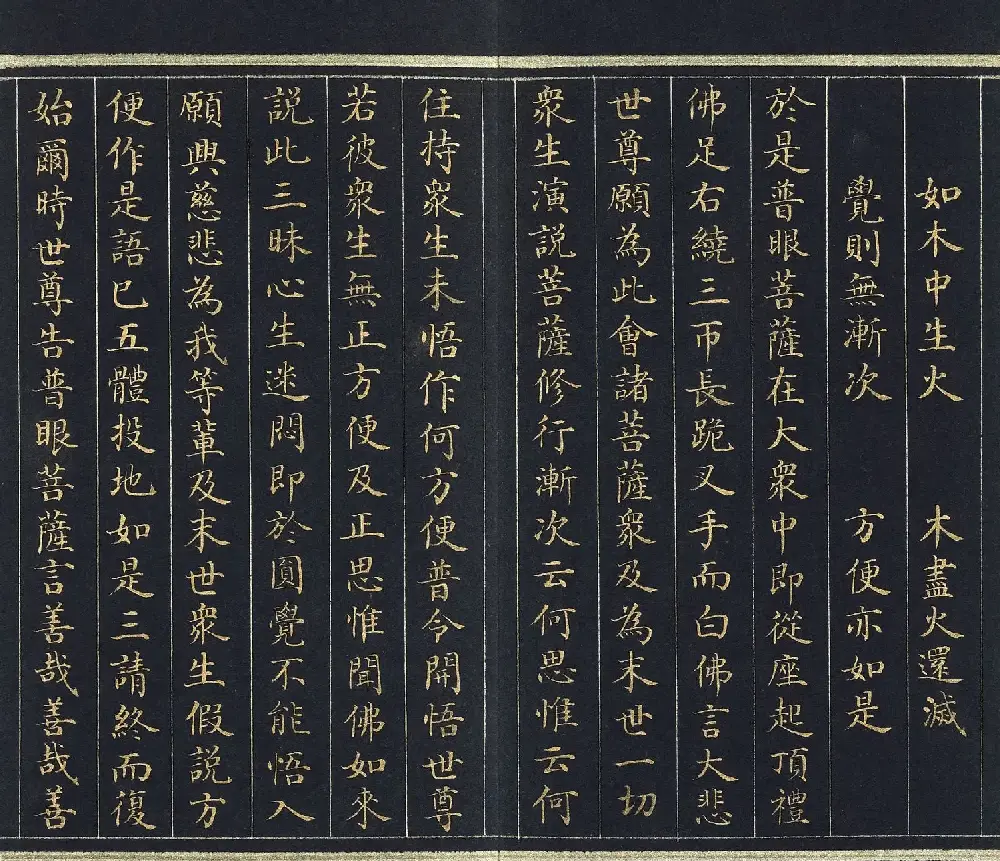 如木中生火　木盡火還滅
覺則無漸次　方便亦如是
於是普眼菩薩在大衆中即從座起頂禮
佛足右繞三帀長跪叉手而白佛言大悲
世尊願為此會諸菩薩衆及為末世一切
衆生演説菩薩修行漸次云何思惟云何
住持衆生未悟作何方便普令開悟世尊
若彼衆生無正方便及正思惟聞佛如來
説此三昧心生迷悶即於圓覺不能悟入
願興慈悲為我等輩及末世衆生假説方
便作是語已五體投地如是三請終而復
始爾時世尊告普眼菩薩言善哉善哉善